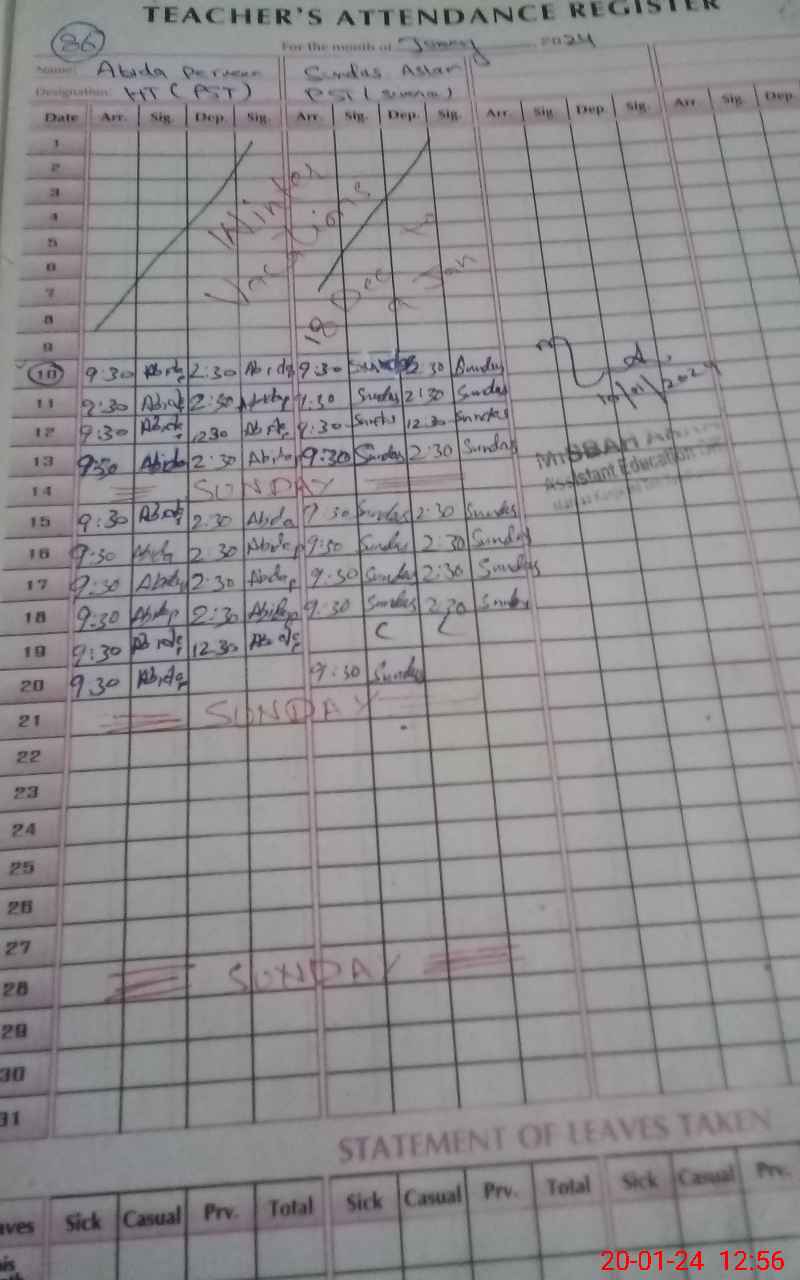 TEACHER'S ATTENDANCE REGISTER
86
For the month of 2024
Name: Abida Perveen Sundas Aslam
Designation: HT (PST) PST (
Date Arr. Sig. Dep. Sig. Arr. Sig. Dep. Sig. Arr. Sig. Dep. Sig. Arr. Sig. Dep.
1
2
3
4
5
6
7
8
9
Winter
Vacations
18 Dec to
9 Jan
10 9:30 Abida 2:30 Abida 9:30 Sundas 2:30 Sundas
11 9:30 Abida 2:30 Abida 9:30 Sundas 2:30 Sundas
10/01/2024
12 9:30 Abida 12:30 Abida 9:30 Sundas 12:30 Sundas
13 9:30 Abida 2:30 Abida 9:30 Sundas 2:30 Sundas
MISBAH
Assistant Education
14 SUNDAY
15 9:30 Abida 2:30 Abida 9:30 Sundas 2:30 Sundas
16 9:30 Abida 2:30 Abida 9:30 Sundas 2:30 Sundas
17 9:30 Abida 2:30 Abida 9:30 Sundas 2:30 Sundas
18 9:30 Abida 2:30 Abida 9:30 Sundas 2:30 Sundas
19 9:30 Abida 12:30 Abida C L
20 9:30 Abida 9:30 Sundas
21 SUNDAY
22
23
24
25
26
27
28 SUNDAY
29
30
31
STATEMENT OF LEAVES TAKEN
aves Sick Casual Prv. Total Sick Casual Prv. Total Sick Casual Prv.
20-01-24 12:56